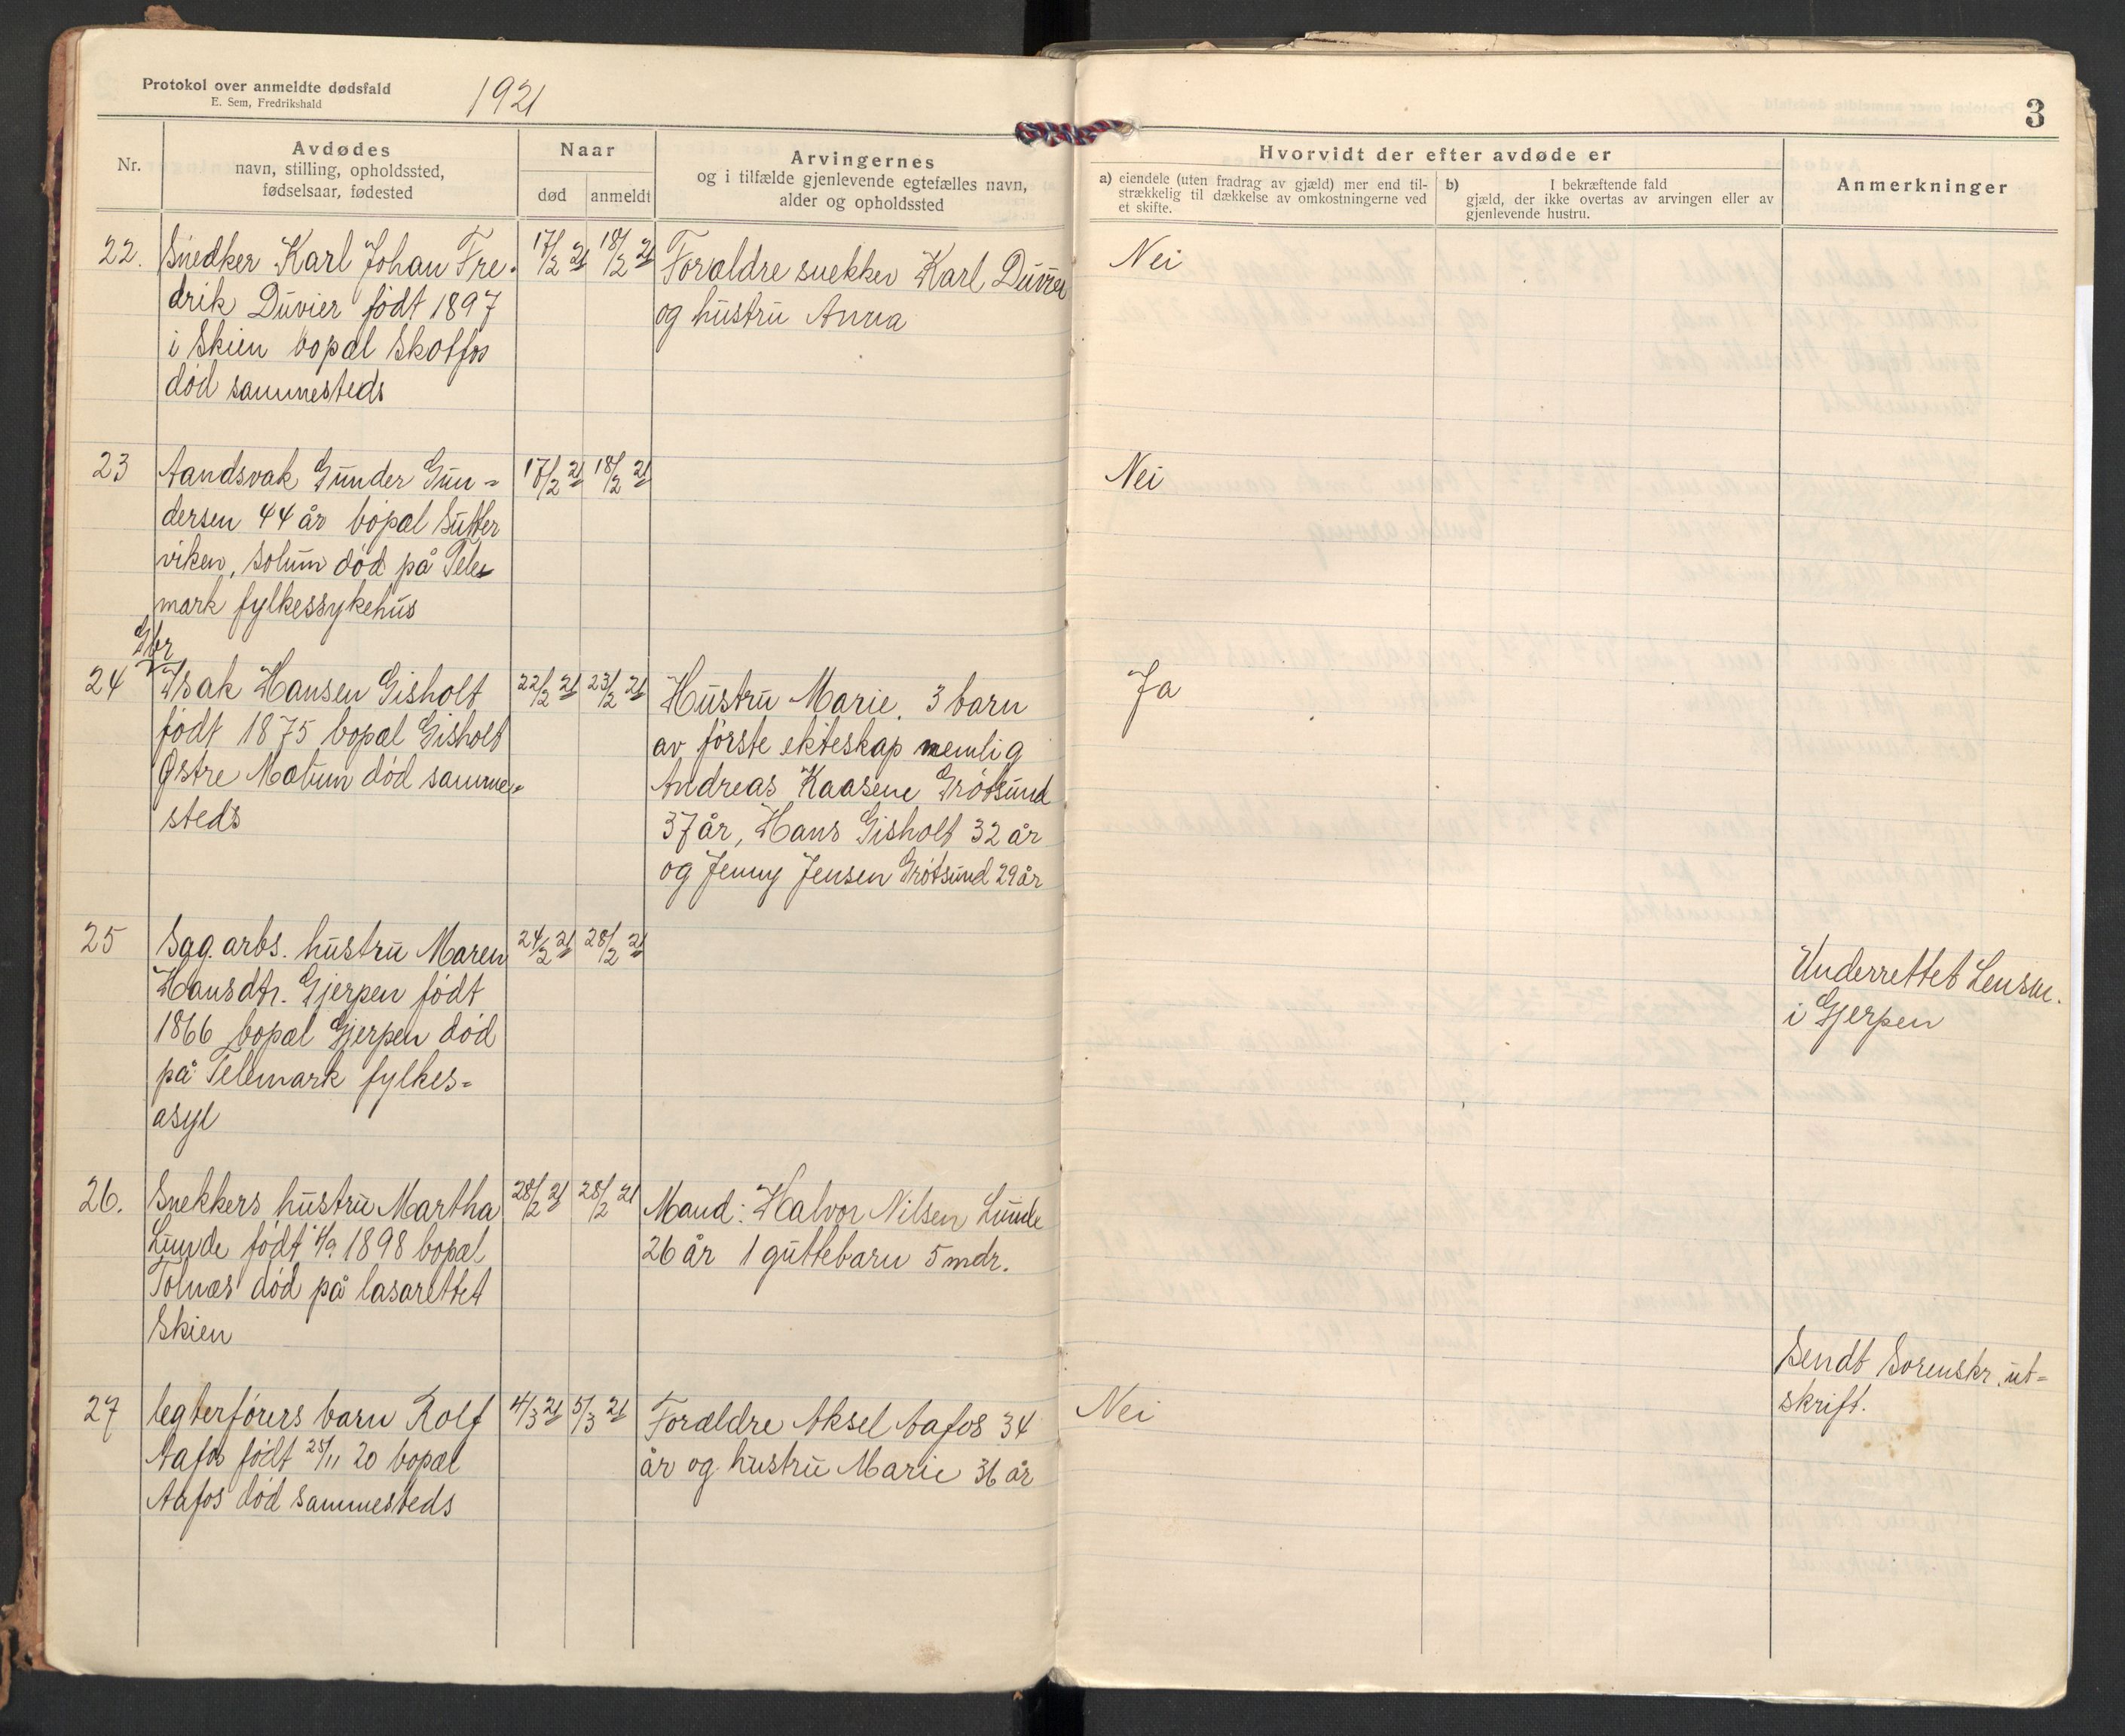 Protokol over anmeldte dødsfald
E. Sem, Fredrikshald
1921
3
Nr.
Avdødes
navn, stilling, opholdssted,
fødselsaar, fødested
Naar
død
anmeldt
Arvingernes
og i tilfælde gjenlevende egtefælles navn,
alder og opholdssted
Hvorvidt der efter avdøde er
a) eiendele (uten fradrag av gjæld) mer end til-
strækkelig til dækkelse av omkostningerne ved
et skifte.
b) I bekræftende fald
gjæld, der ikke overtas av arvingen eller av
gjenlevende hustru.
Anmerkninger
22.
Snedker Karl Johan Fre-
drik Duvier født 1897
i Skien bopæl Skotfos
død sammesteds
17/2 21
18/2 21
Forældre snekker Karl Duvier
og hustru Anna
Nei
23
Aandsvak Gunder Gun=
dersen 44 år bopæl Sutter
viken, Solum død på Tele
mark fylkessykehus
17/2 21
18/2 21
Nei
Gbr
24
Isak Hansen Gisholt
født 1875 bopæl Gisholt
Østre Mælum død samme-
steds
22/2 21
23/2 21
Hustru Marie. 3 barn
av første ekteskap nemlig
Andreas Kaasene Grøtsund
37 år, Hans Gisholt 32 år
og Jenny Jensen Grøtsund 29 år
Ja
25
Sag.arbs. hustru Maren
Hansdtr. Gjerpen født
1866 bopæl Gjerpen død
på Telemark fylkes=
asyl
24/2 21
28/2 21
Underrettet Lensm.
i Gjerpen
26.
Snekkers hustru Martha
Lunde født 1898 bopæl
Tolnæs død på lasarettet
Skien
28/2 21
28/2 21
Mand: Halvor Nilsen Lunde
26 år 1 guttebarn 5 mdr.
Sendt Sorenskr. ut=
skrift.
27
legterførers barn Rolf
Aafos født 25/11 20 bopæl
Aafos død sammesteds
4/3 21
5/3 21
Forældre Aksel Aafos 34
år og hustru Marie 36 år
Nei